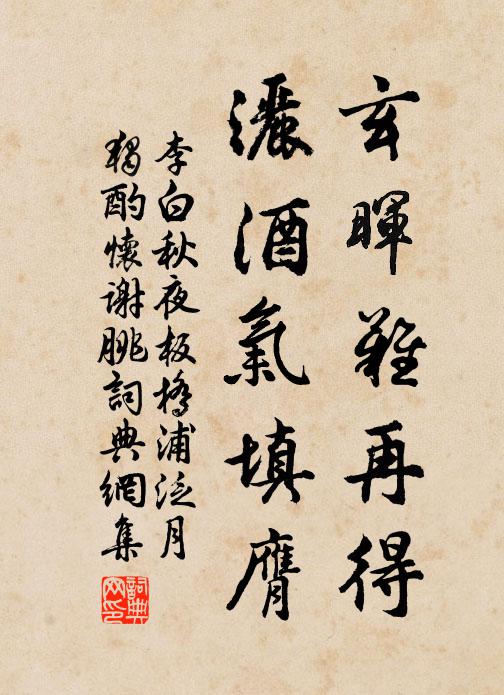 玄暉難再得
灑酒氣填膺
李白秋夜板橋浦泛月
獨酌懷謝朓詞典網集
詞典
网印